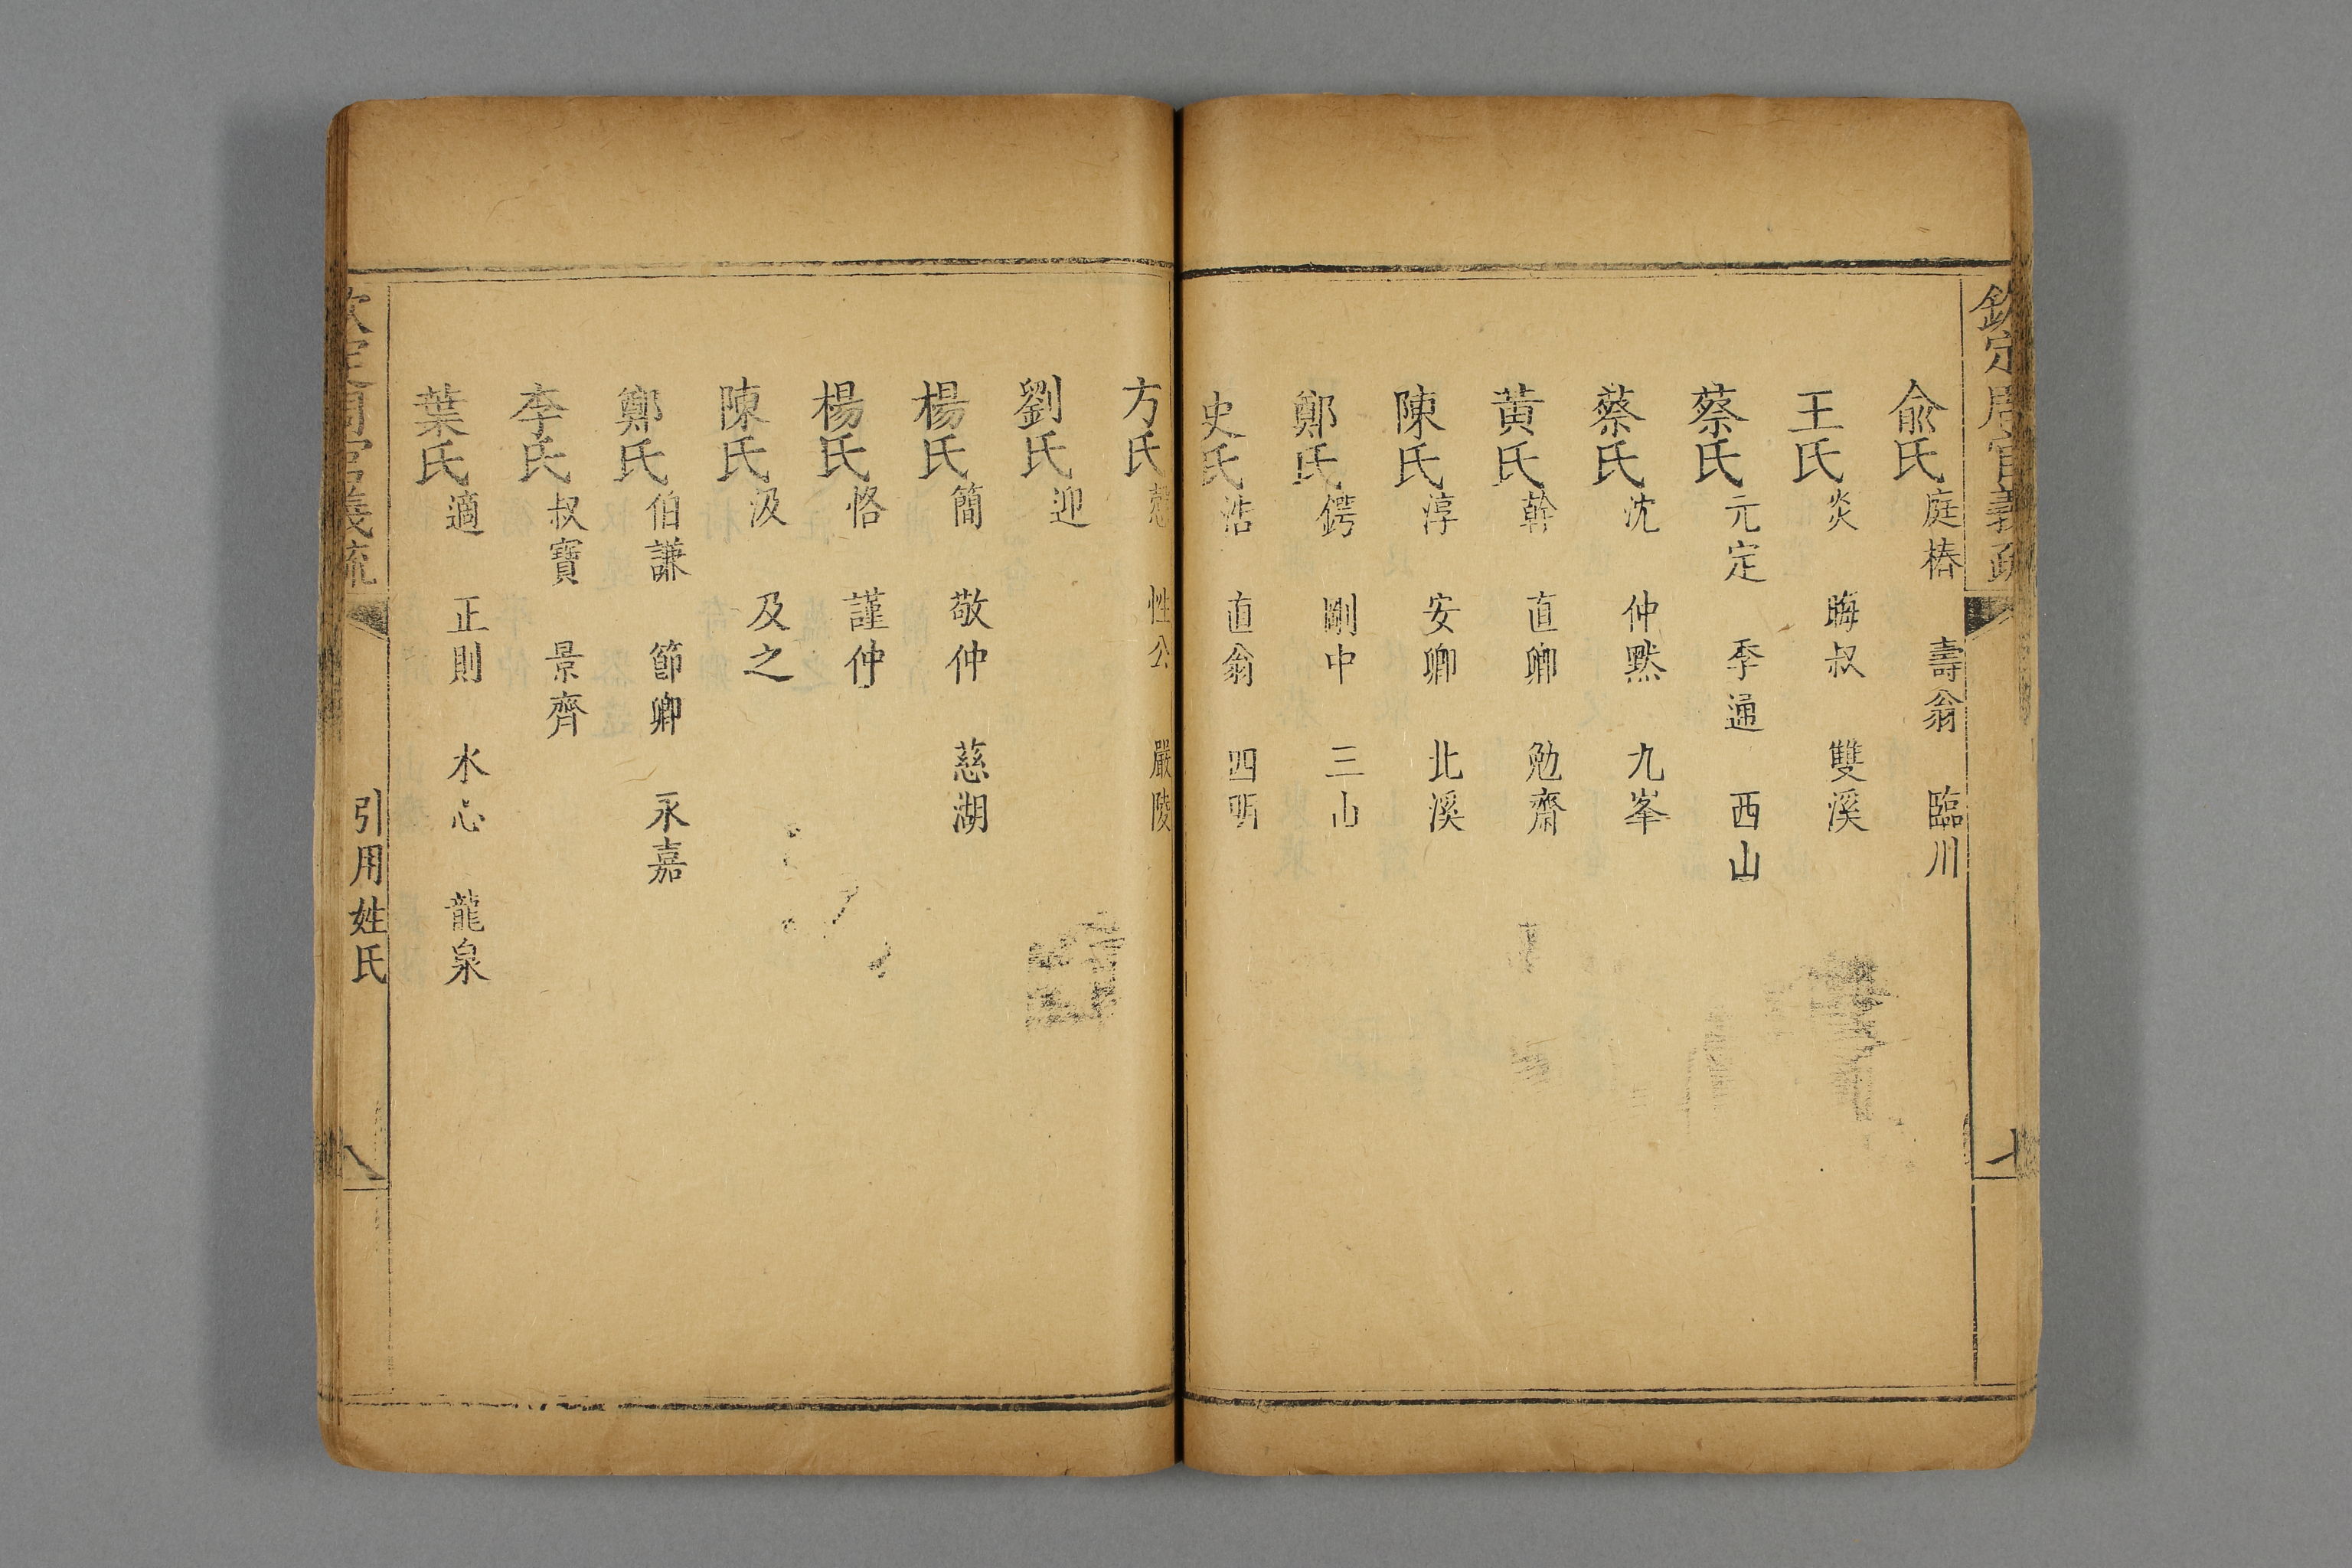 欽定周官義疏
七
俞氏 庭椿 壽翁 臨川
王氏 炎 晦叔 雙溪
蔡氏 元定 季通 西山
蔡氏 沈 仲黙 九峯
黄氏 幹 直卿 勉齋
陳氏 淳 安卿 北溪
鄭氏 鍔 剛中 三山
史氏 浩 直翁 四明
方氏 慤 性公 嚴陵
劉氏 迎
楊氏 簡 敬仲 慈湖
楊氏 恪 謹仲
陳氏 汲 及之
鄭氏 伯謙 節卿 永嘉
李氏 叔寶 景齊
葉氏 適 正則 水心 龍泉
欽定周官義疏 引用姓氏 八